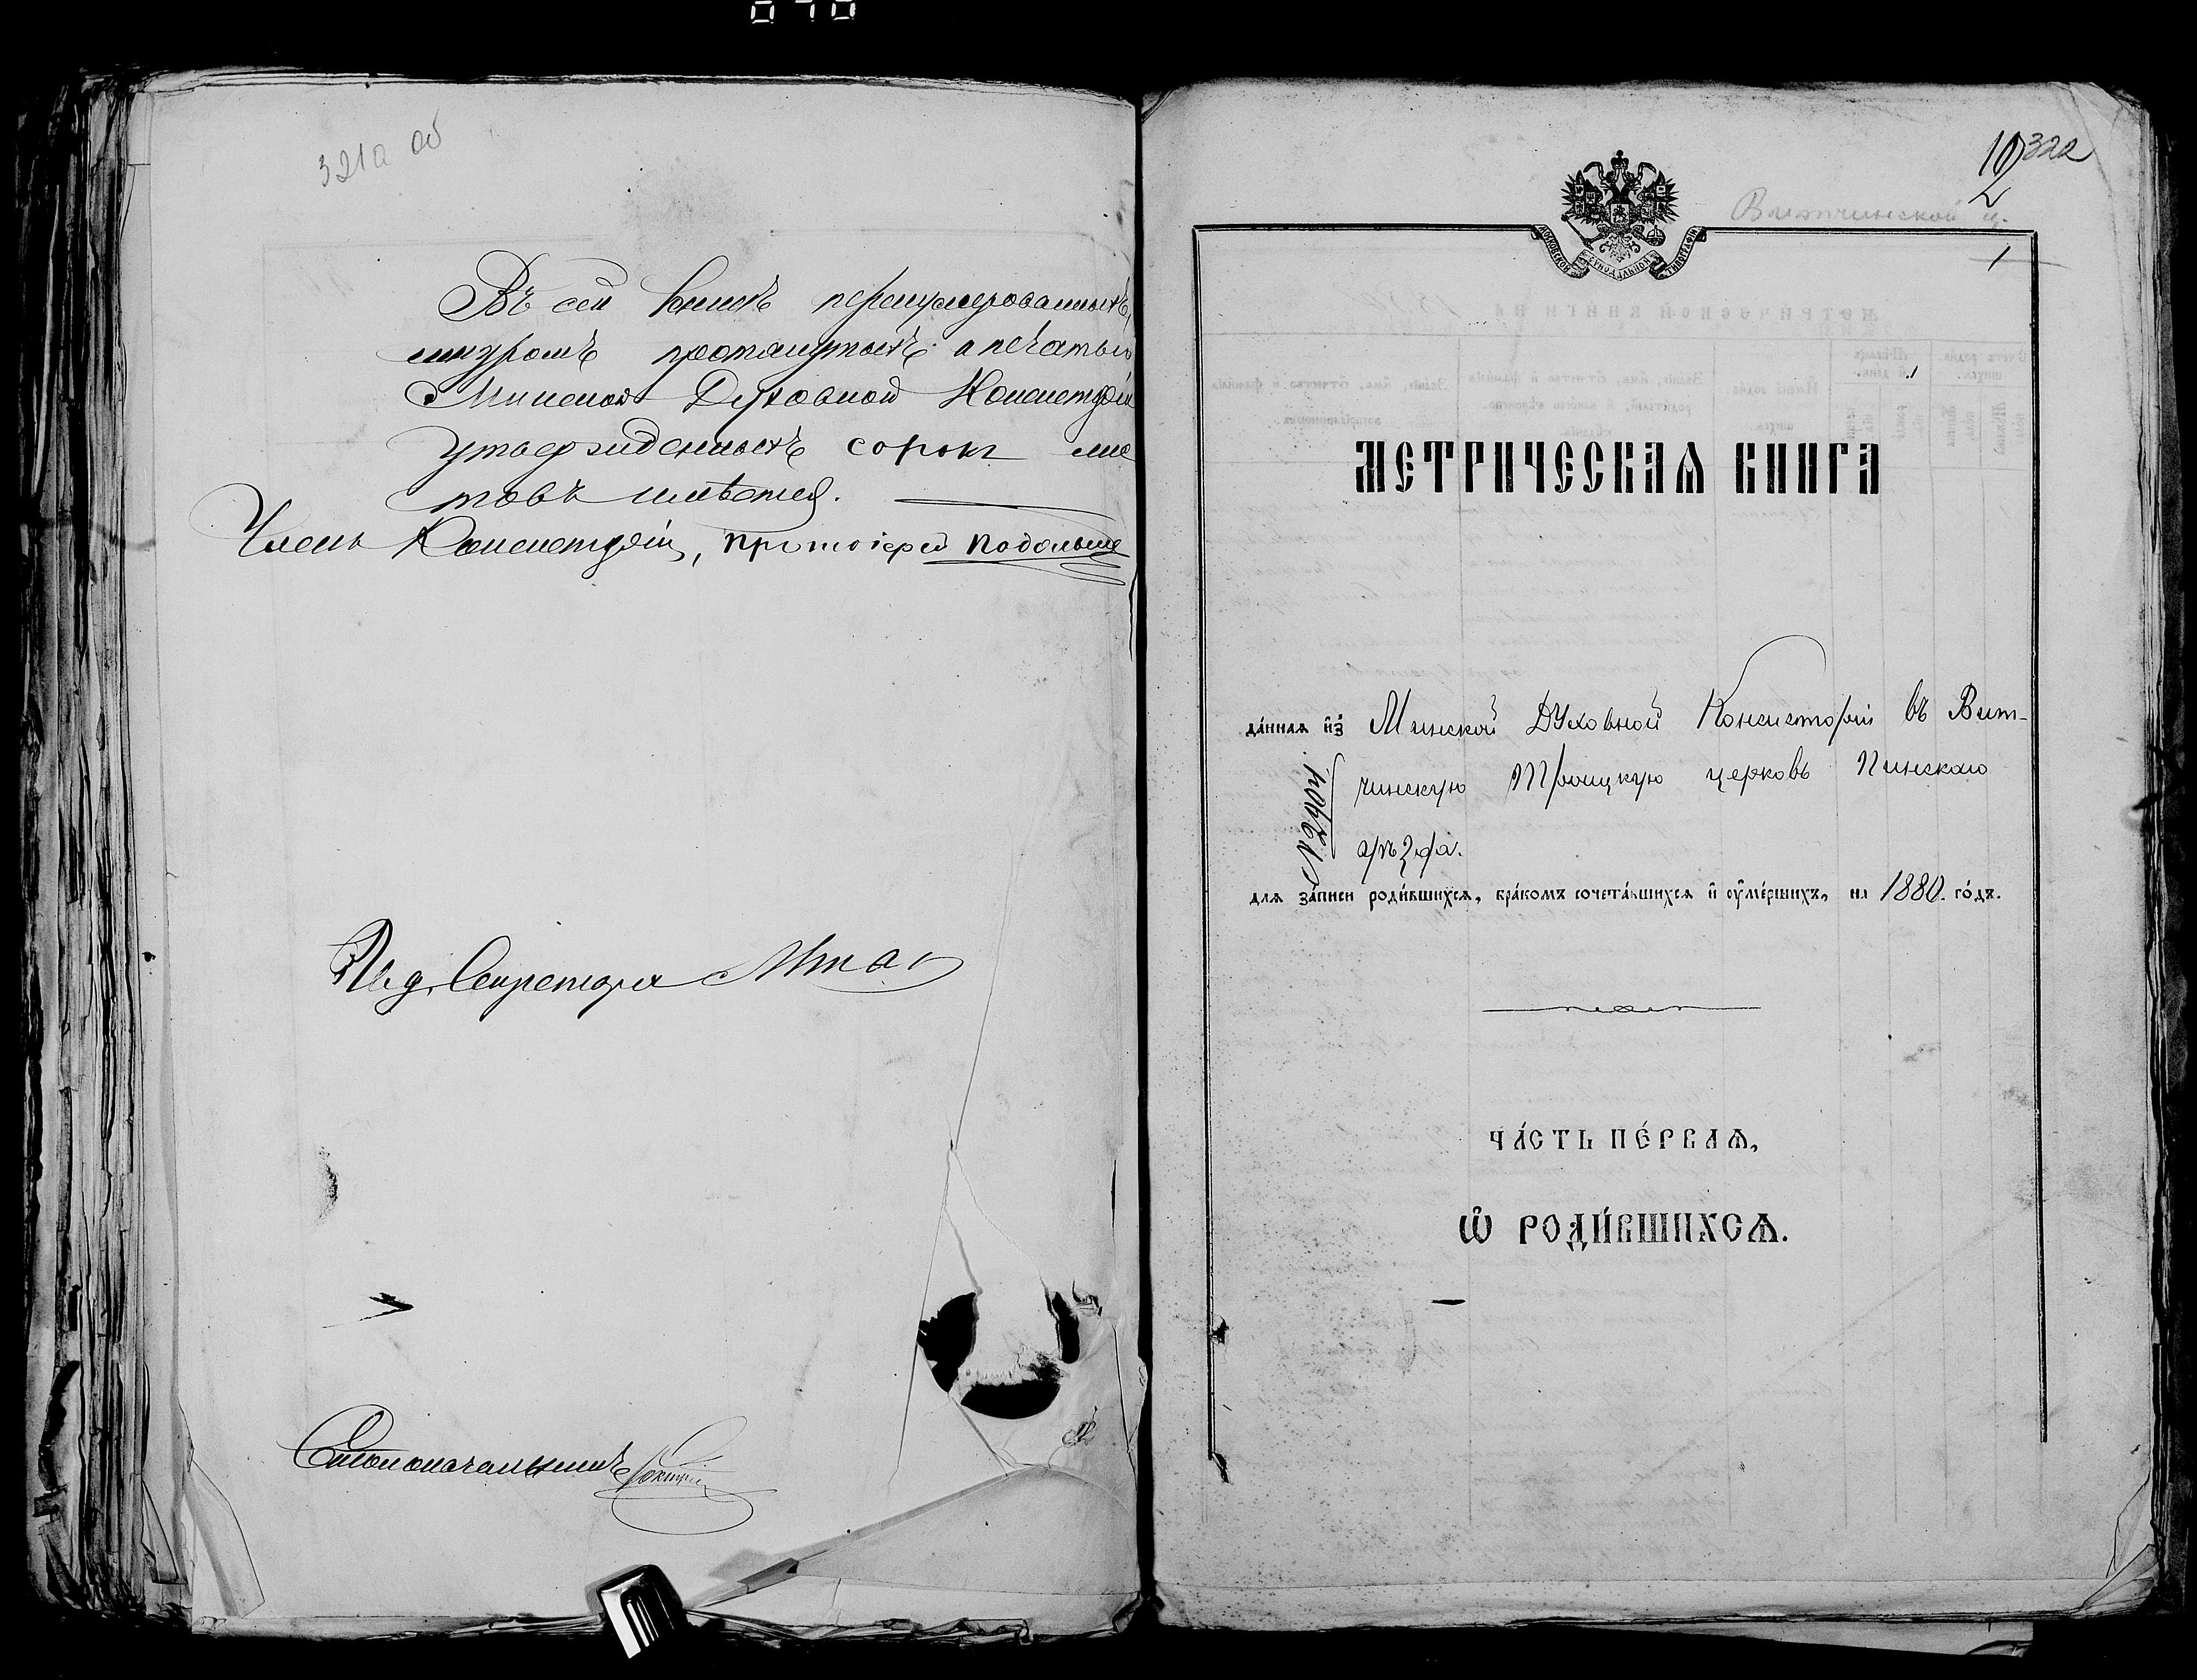 321а об
Въ сей книгѣ перенумерованныхъ,
шнуромъ протянутыхъ и печатью
Минской Духовной Консисторіи
утвержденныхъ сорокъ лис
товъ имѣется.
Членъ Консисторіи, Протоіерей Подольскі
И. д. Секретаря
Столоначальникъ
322
10
2
Вытчинской ц.
1
МОСКОВСКОЙ СѴНОДАЛЬНОЙ ТИПОГРАФІИ
МЕТРИЧЕСКАѦ КНИГА
да́ннаѧ и҆з̾ Минской Духовной Консисторіи въ Вит-
чинскую Троицкую церковь Пинскаго
уѣзда.
№ 2904
длѧ за́писи роди́вшихсѧ, бра́комъ сочета́вшихсѧ и҆ ᲂу҆ме́ршихъ, на 1880. го́дъ.
ЧА́СТЬ ПЕ́РВАѦ,
Ѡ҆ РОДИ́ВШИХСѦ.